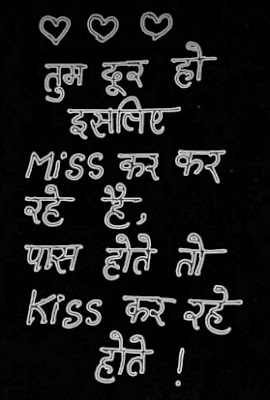 तुम दूर हो
इसलिए
Miss कर कर
रहे है,
पास होते तो
Kiss कर रहे
होते !